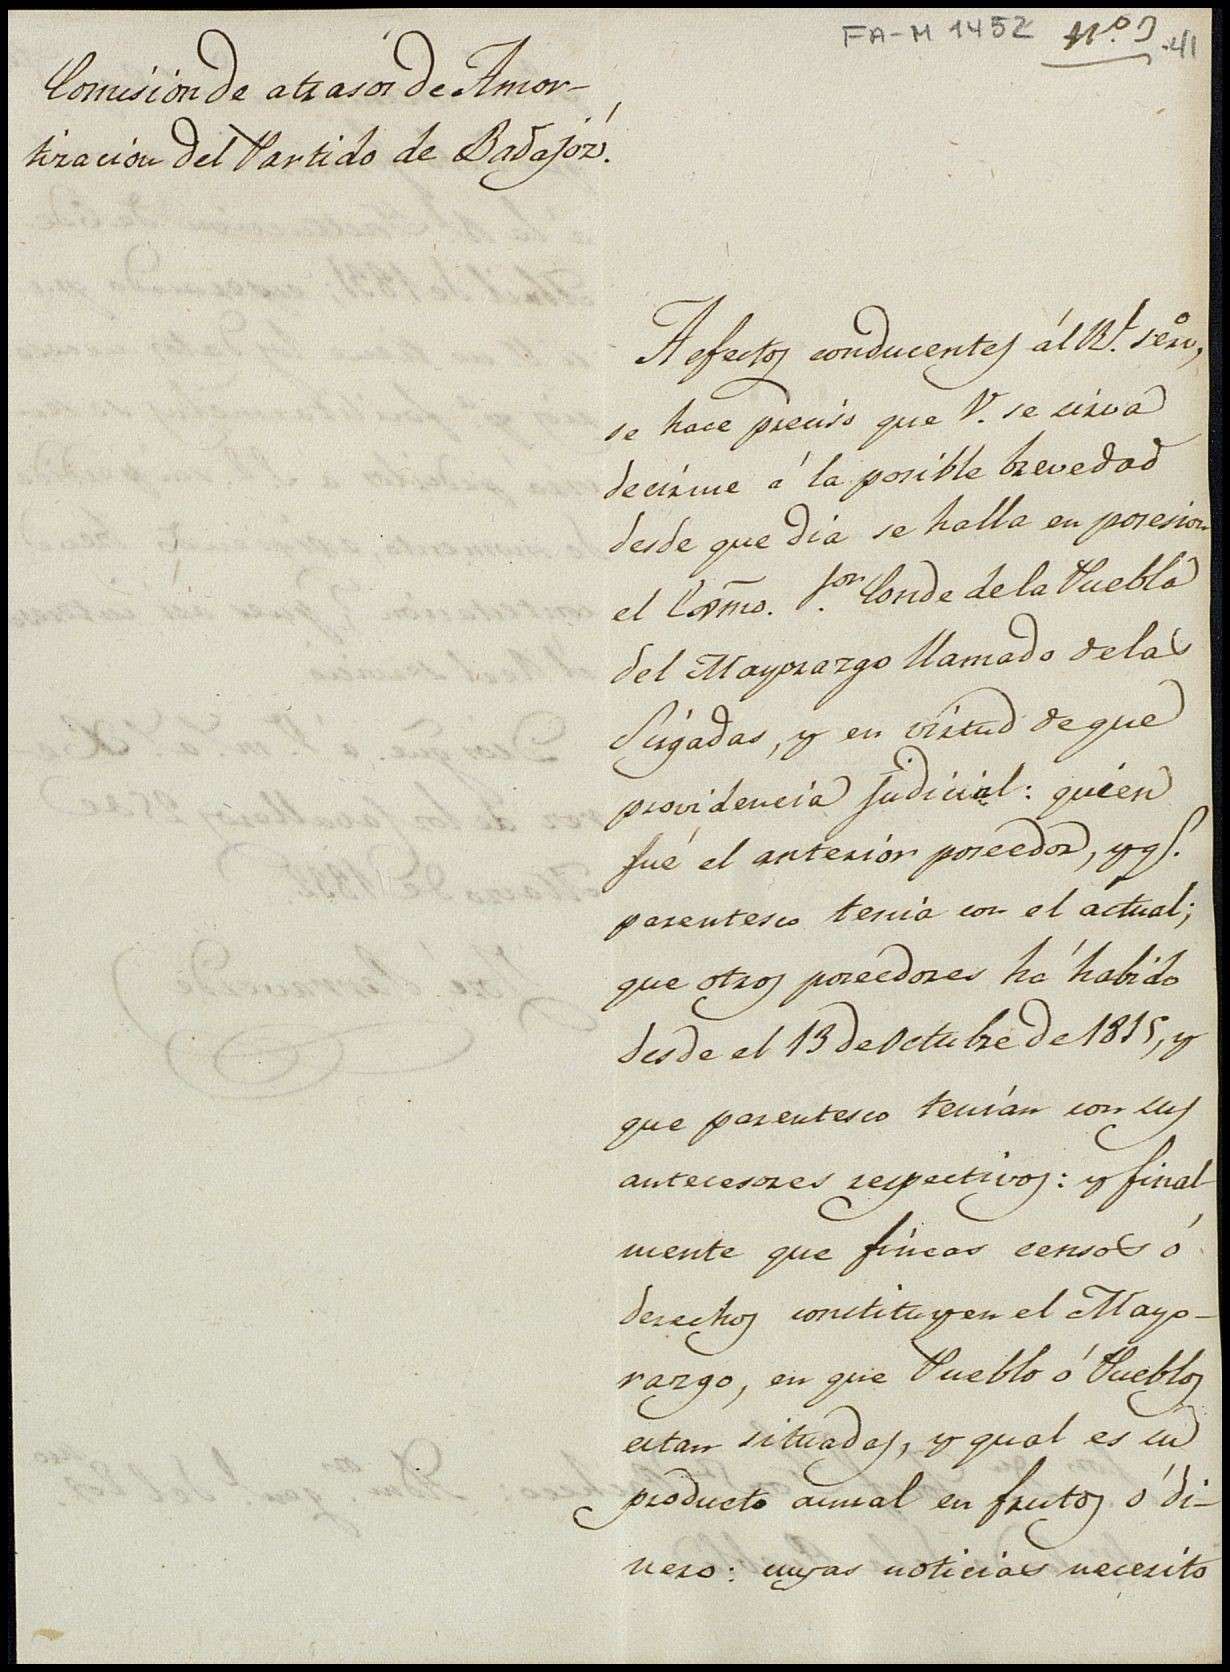 FA-M 1452 Nº. 9
41
Comision de atrasos de Amor-
tizacion del Partido de Badajoz.
A efectos conducentes ál Rl. servo,
se hace preciso que V. se sirva
decirme á la posible brevedad
desde que dia se halla en posesion
el Exmo. Sor. Conde de la Puebla
del Mayorazgo llamado de las
Sirgadas, y en virtud de que
providencia judicial: quien
fué el anterior poseedor, y qe.
parentesco tenia con el actual;
que otros poseedores há habido
desde el 13 de Octubre de 1815, y
que parentesco tenian con sus
antecesores respectivos: y final-
mente que fincas censos ó
derechos constituyen el Mayo-
razgo, en que Pueblo ó Pueblos
estan situadas, y qual es su
producto anual en frutos ó di-
nero: cuyas noticias necesito